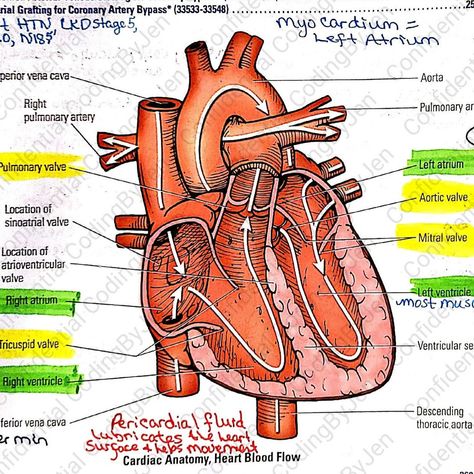 rial Grafting for Coronary Artery Bypass* (33533-33548)
HTN, CKD stage 5,
myocardium =
Left Atrium
perior vena cava
Aorta
Right
pulmonary artery
Pulmonary ar
Pulmonary valve
Left atrium
Aortic valve
Location of
sinoatrial valve
Mitral valve
Location of
atrioventricular
valve
Right atrium
Left ventricle
most mus
Tricuspid valve
Ventricular se
Right ventricle
ferior vena cava
Descending
thoracic aorta
er min
Pericardial fluid
lubricates the heart
surface & helps movement
Cardiac Anatomy, Heart Blood Flow
Confidential CodingByJen